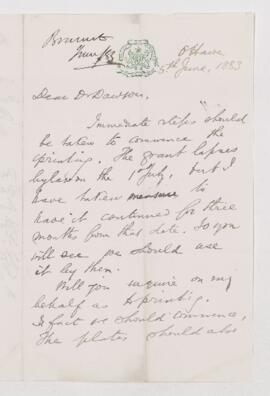 June /83
Ottawa
5th June, 1883
Dear Dr Dawson,
Immediate steps should
be taken to commence the
printing. The grant lapses
by law on the 1st July, but I
have taken measures to
have it continued for three
months from that date. So you
will see we should use
it by then.
Will you inquire on my
behalf as to printing.
In fact we should commence.
The plates should also